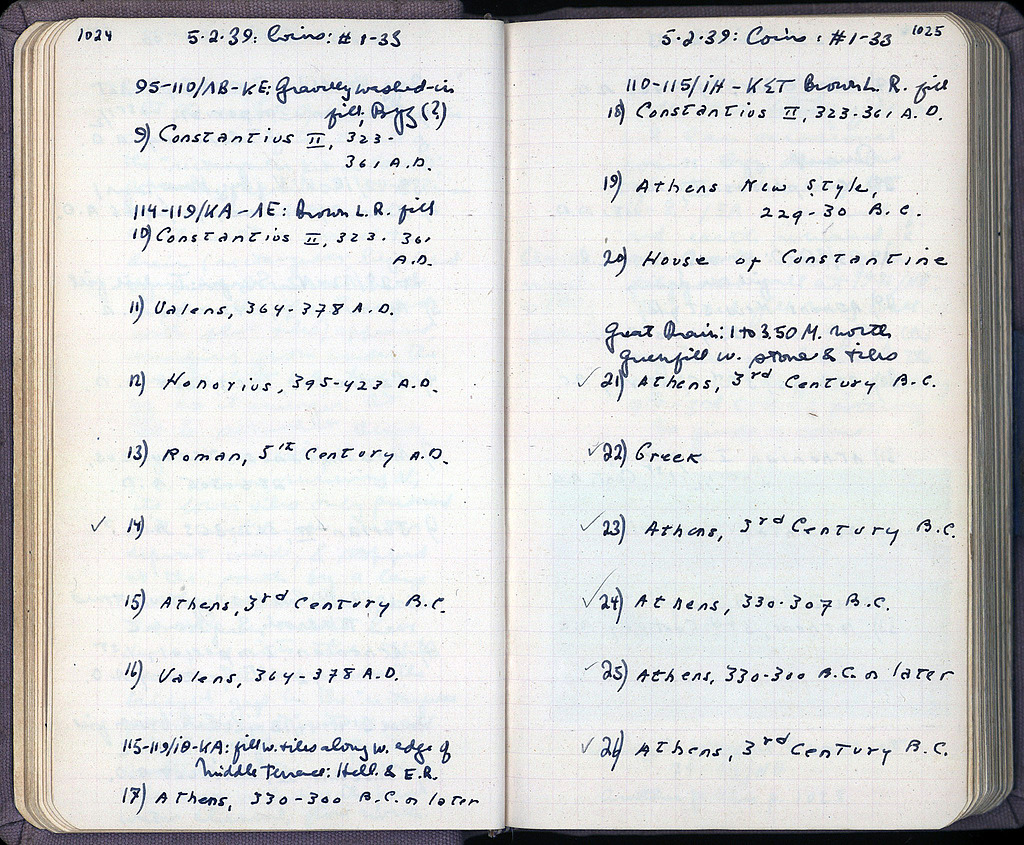 1024
5·2·39: Coins: #1-33
95-110/ΛB-KE: Gravelly washed-in
fill, Byz (?)
9) Constantius II, 323-
361 A.D.
114-119/KA-ΛE: Brown L.R. fill
10) Constantius II, 323-361
A.D.
11) Valens, 364-378 A.D.
12) Honorius, 395-423 A.D.
13) Roman, 5th Century A.D.
✓ 14)
15) Athens, 3rd Century B.C.
16) Valens, 364-378 A.D.
115-119/ΙΘ-KA: fill w. tiles along w. edge of
Middle Terrace: Hell. & E.R.
17) Athens, 330-300 B.C. or later
5·2·39: Coins: #1-33
1025
110-115/ΙΗ-ΚΣΤ Brown L.R. fill
18) Constantius II, 323-361 A.D.
19) Athens New Style,
229-30 B.C.
20) House of Constantine
Great Drain: 1 to 3.50 M. north
Green fill w. stone & tiles
✓ 21) Athens, 3rd Century B.C.
✓ 22) Greek
✓ 23) Athens, 3rd Century B.C.
✓ 24) Athens, 330-307 B.C.
✓ 25) Athens, 330-300 B.C. or later
✓ 26) Athens, 3rd Century B.C.